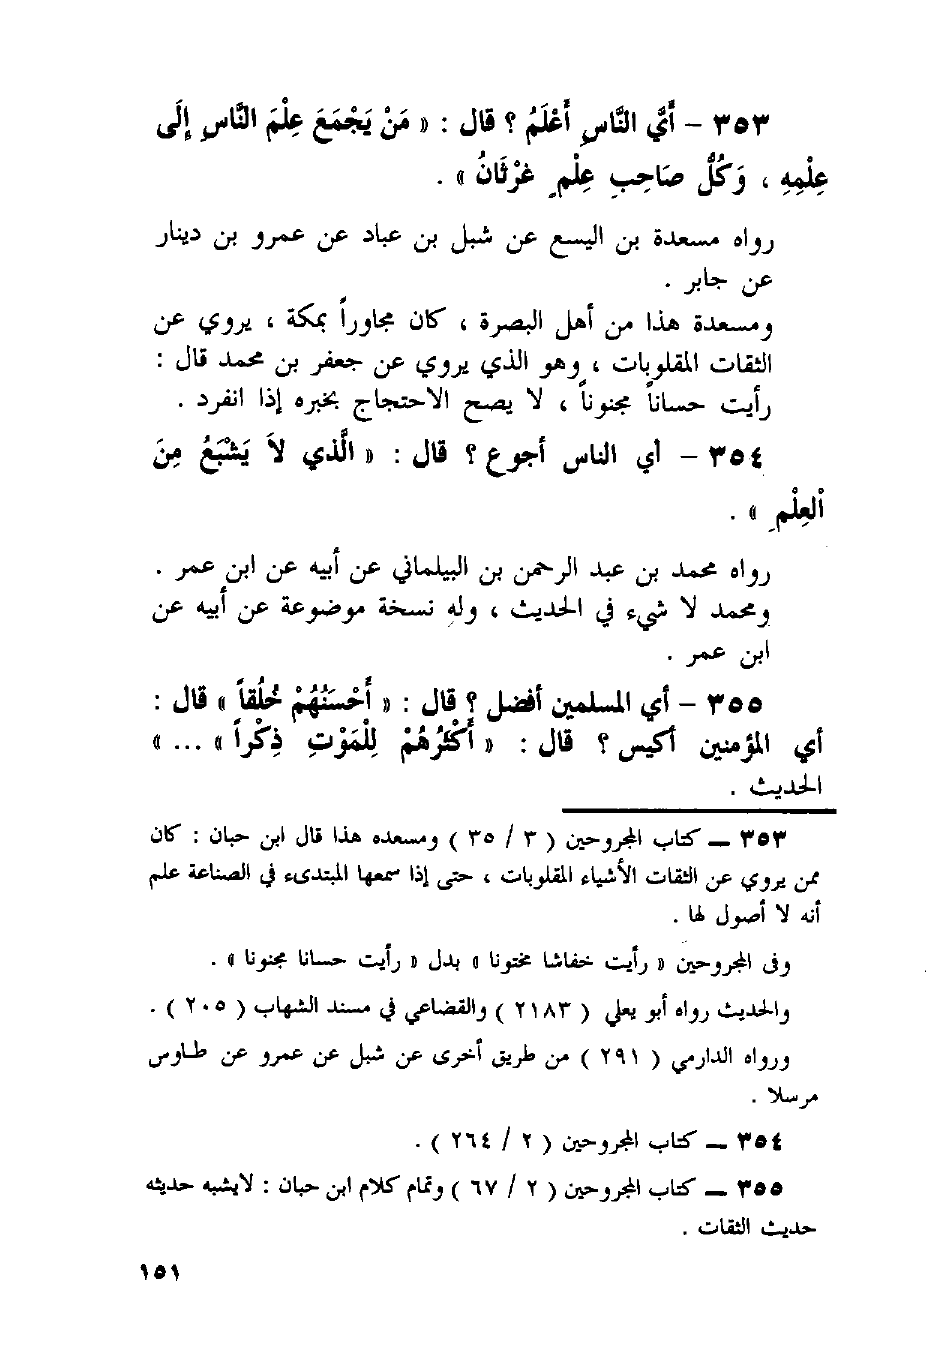 ٣٥٣ - أَيُّ النَّاسِ أَعْلَمُ ؟ قال : « مَنْ يَجْمَعَ عِلْمَ النَّاسِ إِلَى
عِلْمِهِ ، وَكُلُّ صَاحِبِ عِلْمٍ غَرْثَانُ » .
رواه مسعدة بن اليسع عن شبل بن عباد عن عمرو بن دينار
عن جابر .
ومسعدة هذا من أهل البصرة ، كان مجاوراً بمكة ، يروي عن
الثقات المقلوبات ، وهو الذي يروي عن جعفر بن محمد قال :
رأيت حساناً مجنوناً ، لا يصح الاحتجاج بخبره إذا انفرد .
٣٥٤ - أي الناس أجوع ؟ قال : « الَّذي لاَ يَشْبَعُ مِنَ
اْلعِلْمِ » .
رواه محمد بن عبد الرحمن بن البيلماني عن أبيه عن ابن عمر .
ومحمد لا شيء في الحديث ، وله نسخة موضوعة عن أبيه عن
ابن عمر .
٣٥٥ - أي المسلمين أفضل ؟ قال : « أَحْسَنُهُمْ خُلُقاً » قال :
أي المؤمنين أكيس ؟ قال : « أَكْثَرُهُمْ لِلْمَوْتِ ذِكْراً » ... »
الحديث .
٣٥٣ ـ كتاب المجروحين ( ٣ / ٣٥ ) ومسعده هذا قال ابن حبان : كان
ممن يروي عن الثقات الأشياء المقلوبات ، حتى إذا سمعها المبتدىء في الصناعة علم
أنه لا أصول لها .
وفى المجروحين « رأيت خفاشا مختونا » بدل « رأيت حسانا مجنونا » .
والحديث رواه أبو يعلي ( ٢١٨٣ ) والقضاعي في مسند الشهاب ( ٢٠٥ ) .
ورواه الدارمي ( ٢٩١ ) من طريق أخرى عن شبل عن عمرو عن طاوس
مرسلا .
٣٥٤ ـ كتاب المجروحين ( ٢ / ٢٦٤ ) .
٣٥٥ ـ كتاب المجروحين ( ٢ / ٦٧ ) وتمام كلام ابن حبان : لايشبه حديثه
حديث الثقات .
١٥١